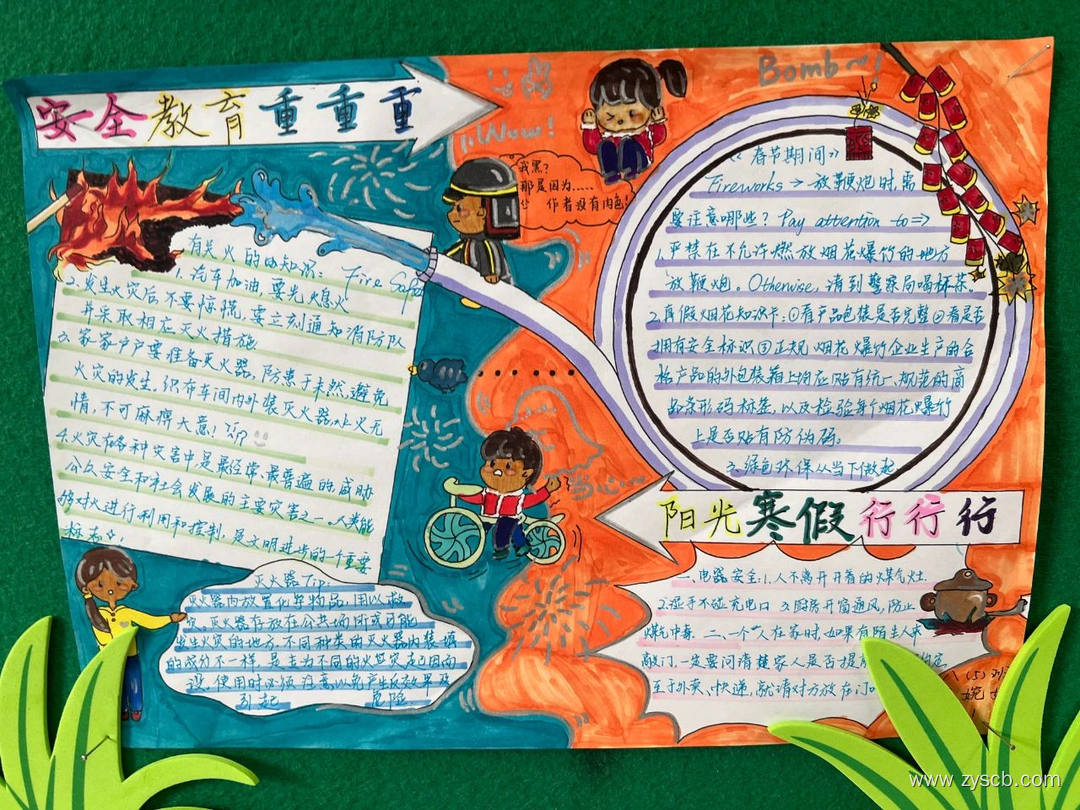 安全教育重重重
Wow!
Bomb~!
我黑?
那是因为.....
作者没有肉色!
有关火的知识: Fire Safe
1.汽车加油,要先熄火
2.发生火灾后,不要惊慌,要立刻通知消防队
并采取相应灭火措施
3.家家户户要准备灭火器,防患于未然,避免
火灾的发生.织布车间内外装灭火器,水火无
情,不可麻痹大意!
4.火灾在各种灾害中是最经常、最普遍的,威胁
公众安全和社会发展的主要灾害之一。人类能
够对火进行利用和控制,是文明进步的一个重要
标志
灭火器Tip:
灭火器内放置化学物品,用以救
火.灭火器存放在公共场所或可能
发生火灾的地方.不同种类的灭火器内装填
的成分不一样,是专为不同的火灾
设,使用时必须注意以免产生反效果及
引起 危险
《春节期间》
Fireworks → 放鞭炮时,需
要注意哪些? Pay attention to=>
1.严禁在不允许燃放烟花爆竹的地方
放鞭炮。Otherwise,请到警察局喝杯茶
2.真假烟花知识卡:①看产品包装是否完整②看是否
拥有安全标识③正规烟花爆竹企业生产的合
格产品的外包装箱上均应贴有统一、规范的商
品条形码标签,以及检验每个烟花爆竹
上是否贴有防伪码。
3.绿色环保从当下做起
当心
阳光寒假行行行
一、电器安全:1.人不离开开着的煤气灶.
2.湿手不碰充电口 3.厨房开窗通风,防止
煤气中毒. 二、一个人在家时,如果有陌生人来
敲门,一定要问清楚家人是否提前
至于外卖、快递,就请对方放在门口
(5)班
www.zyscb.com